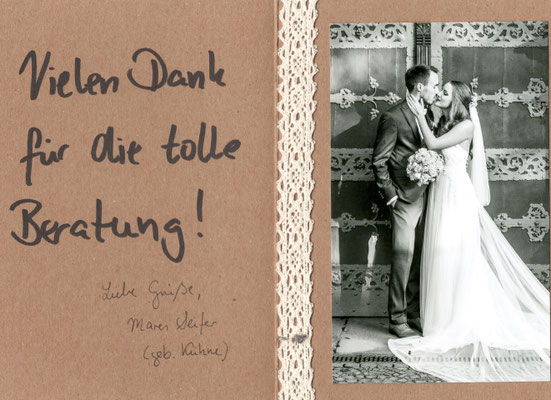 Vielen Dank
für die tolle
Beratung!
Liebe Grüße,
Maren Seifer
(geb. Kühne)